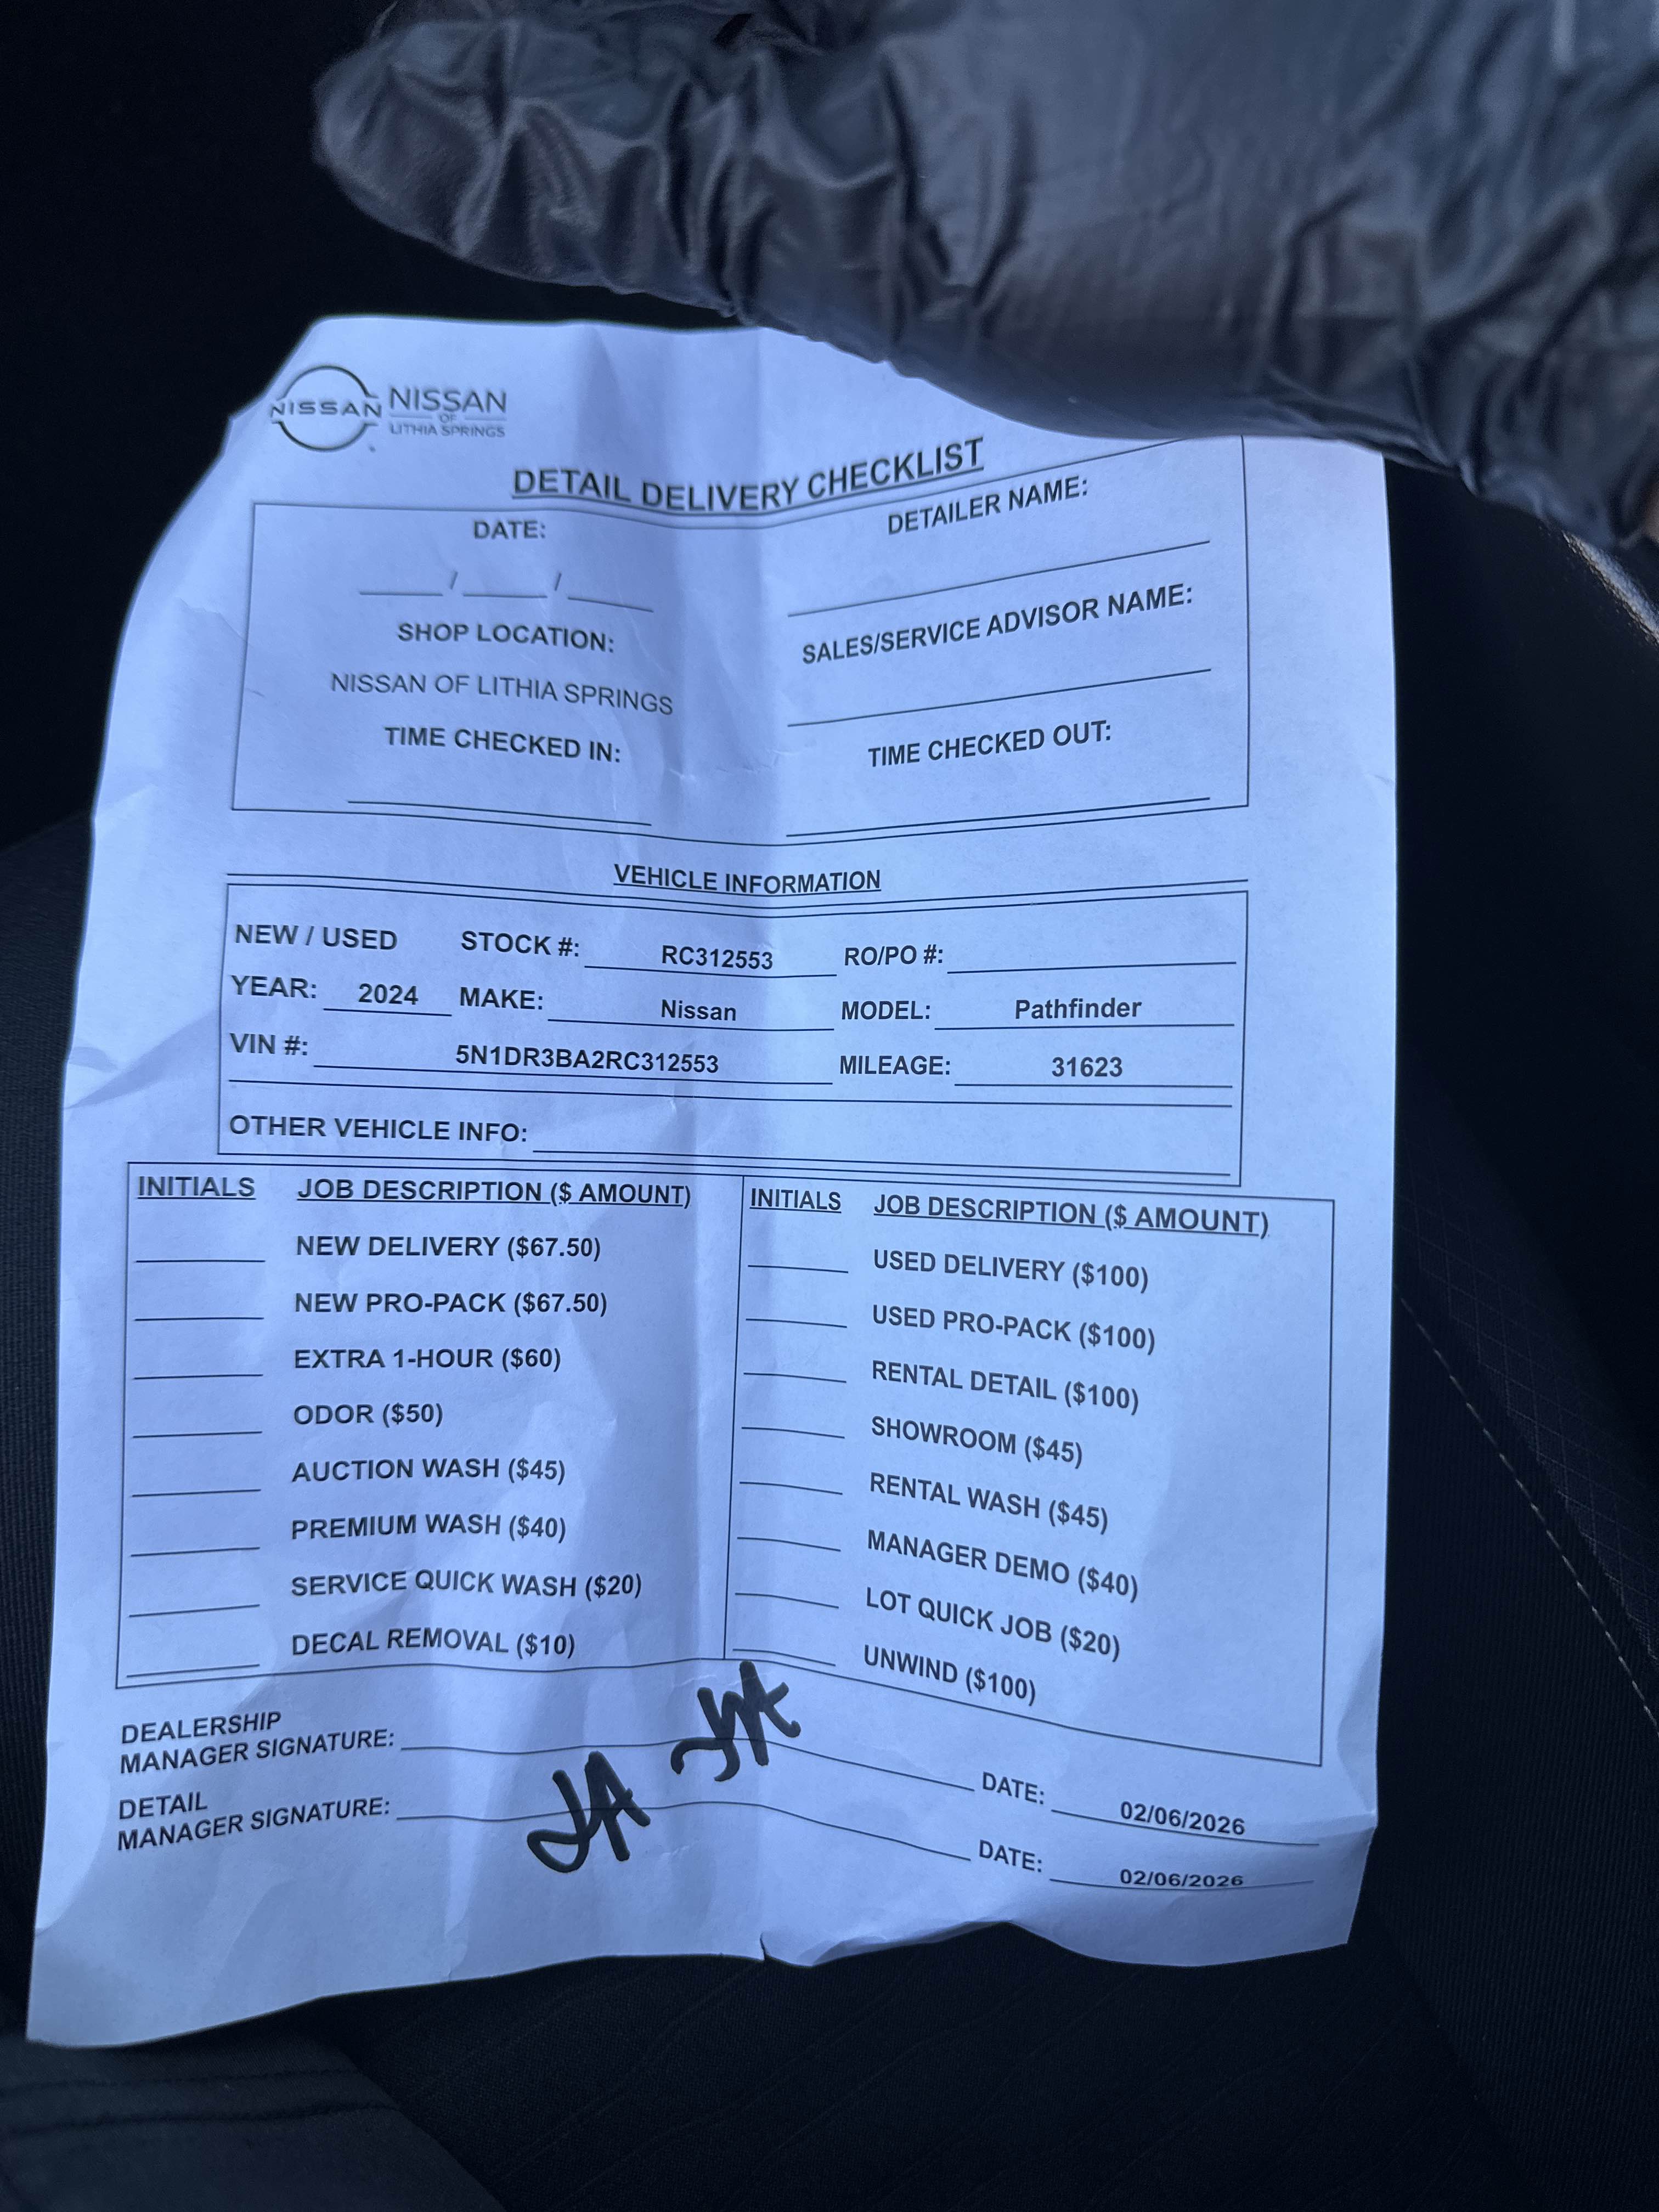 NISSAN NISSAN
OF
LITHIA SPRINGS
DETAIL DELIVERY CHECKLIST
DATE: DETAILER NAME:
____/____/____
SHOP LOCATION: SALES/SERVICE ADVISOR NAME:
NISSAN OF LITHIA SPRINGS
TIME CHECKED IN: TIME CHECKED OUT:
VEHICLE INFORMATION
NEW / USED STOCK #: RC312553 RO/PO #:
YEAR: 2024 MAKE: Nissan MODEL: Pathfinder
VIN #: 5N1DR3BA2RC312553 MILEAGE: 31623
OTHER VEHICLE INFO:
INITIALS JOB DESCRIPTION ($ AMOUNT)
NEW DELIVERY ($67.50)
NEW PRO-PACK ($67.50)
EXTRA 1-HOUR ($60)
ODOR ($50)
AUCTION WASH ($45)
PREMIUM WASH ($40)
SERVICE QUICK WASH ($20)
DECAL REMOVAL ($10)
INITIALS JOB DESCRIPTION ($ AMOUNT)
USED DELIVERY ($100)
USED PRO-PACK ($100)
RENTAL DETAIL ($100)
SHOWROOM ($45)
RENTAL WASH ($45)
MANAGER DEMO ($40)
LOT QUICK JOB ($20)
UNWIND ($100)
DEALERSHIP
MANAGER SIGNATURE: DATE: 02/06/2026
DETAIL
MANAGER SIGNATURE: DATE: 02/06/2026